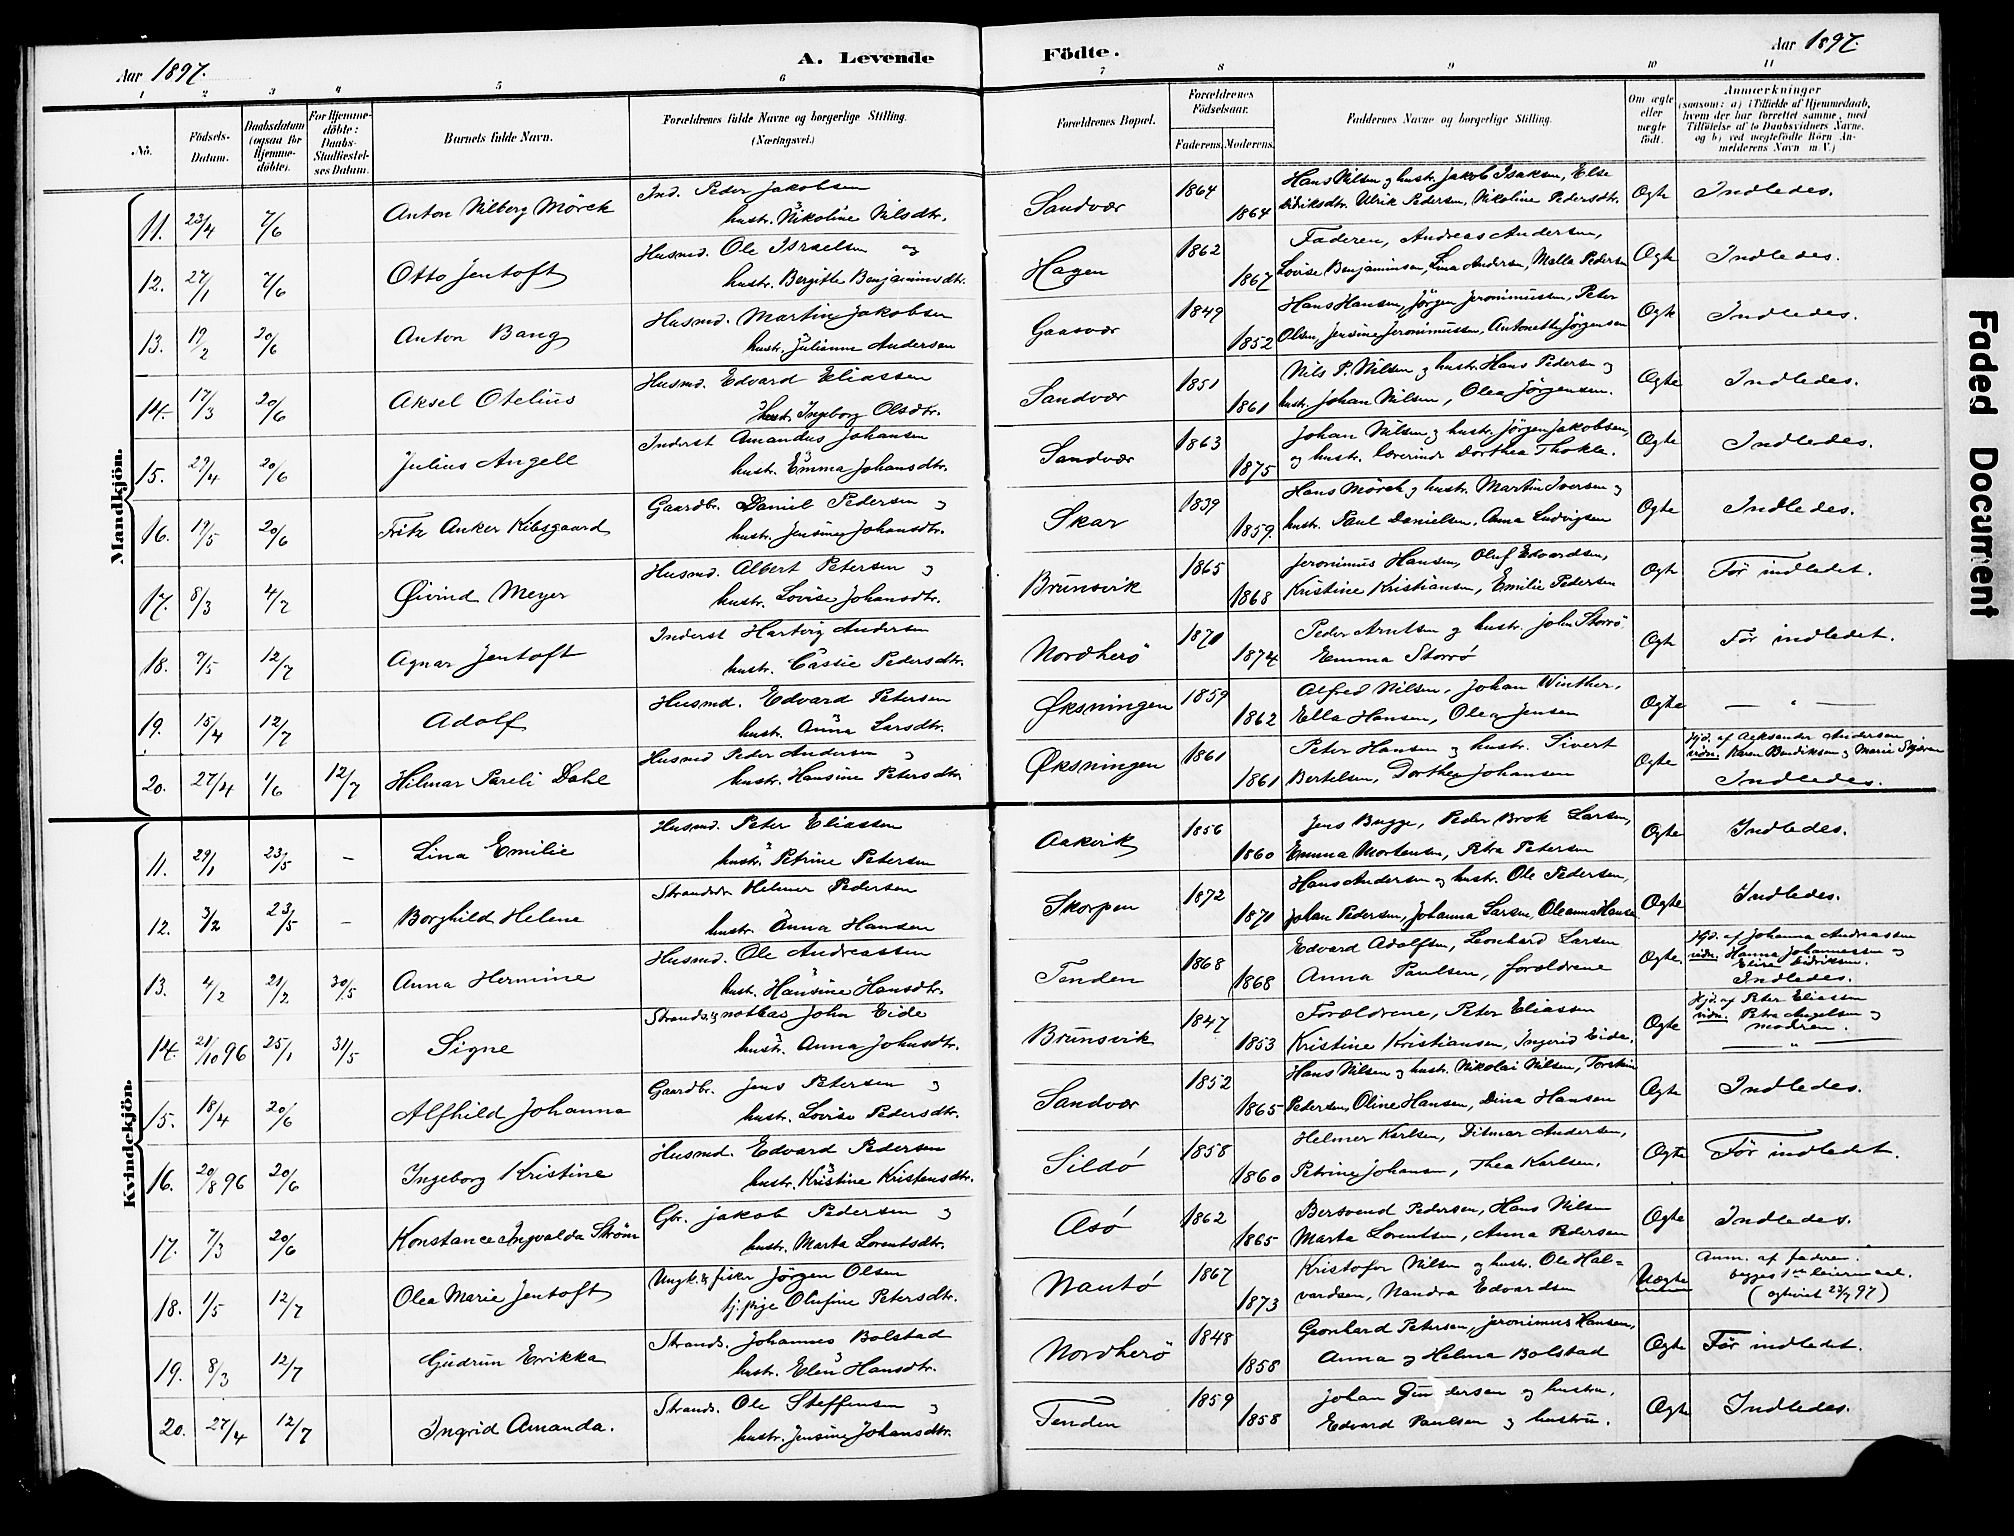 Aar 1897.
A. Levende
Födte.
Aar 1897.
1 2 3 4 5 6 7 8 9 10 11
No.
Födsels-Datum.
Daabsdatum (ogsaa for Hjemmedöbte).
For Hjemmedöbte: Daabs-Stadfæstelses Datum.
Barnets fulde Navn.
Forældrenes fulde Navne og borgerlige Stilling. (Næringsvei.)
Forældrenes Bopæl.
Forældrenes Födselsaar.
Faderens. Moderens.
Faddernes Navne og borgerlige Stilling.
Om ægte eller uægte födt.
Anmærkninger
(saasom: a) i Tilfælde af Hjemmedaab, hvem der har forrettet samme, med Tilföielse af to Daabsvidners Navne, og b) ved uægtefödte Börn Anmelderens Navn m V.)
Mandkjön.
11. 23/4 7/6 Anton Nilberg Mörck Ind. Peder Jakobsen
hustr. Nikoline Nilsdtr. Sandvær 1864 1864 Hans Nilsen og hustr. Jakob Isaksen, Else
Didriksdtr. Ulrik Pedersen, Nikoline Pedersdtr. Ogte Indledes.
12. 27/1 7/6 Otto Jentoft Husmd. Ole Israelsen og
hustr. Bergitte Benjaminsdtr. Hagen 1862 1867 Faderen, Andreas Andersen,
Lovise Benjaminsen, Lina Andersen, Malla Pedersen Ogte Indledes.
13. 19/2 20/6 Anton Bang Husmd. Martin Jakobsen
hustr. Julianne Andersen Gaasvær 1849 1852 Hans Hansen, Jörgen Jeronimussen, Peter
Olsen, Jensine Jeronimussen, Antonette Jörgensen Ogte Indledes.
14. 17/3 20/6 Aksel Otelius Husmd. Edvard Eliassen
hustr. Ingeborg Olsdtr. Sandvær 1851 1861 Nils P. Nilsen og hustr. Hans Pedersen og
hustr. Johan Nilsen, Olea Jörgensen. Ogte Indledes.
15. 29/4 20/6 Julius Angell Inderst Amandus Johansen
hustr. Emma Johansdtr. Sandvær 1863 1875 Johan Nilsen og hustr. Jörgen Jakobsen,
og hustr. lærerinde Dorthea Thokle. Ogte Indledes.
16. 19/5 20/6 Fritz Anker Kibsgaard Gaardbr. Daniel Pedersen og
hustr. Jensine Johansdtr. Skar 1839 1859. Hans Mörch og hustr. Martin Iversen og
hustr. Paul Danielsen, Anna Ludvigsen Ogte Indledes.
17. 8/3 4/7 Øivind Meyer Husmd. Albert Petersen og
hustr. Lovise Johansdtr. Brunsvik 1865 1868 Jeronimus Hansen, Oluf Edvardsen,
Kristine Kristiansen, Emilie Pedersen Ogte Før indledet.
18. 7/5 12/7 Agnar Jentoft Inderst Hartvig Andersen
hustr. Cassie Pedersdtr. Nordherö 1870 1874 Peder Arntsen og hustr. John Storrö
Emma Storrö Ogte Før indledet.
19. 15/4 12/7 Adolf Husmd. Edvard Petersen
hustr. Anna Larsdtr. Øksningen 1859 1862 Alfred Nilsen, Johan Winther,
Ella Hansen, Olea Jensen Ogte — " —
20. 27/4 1/6 12/7 Hilmar Pareli Dahl Husmd Peder Andersen og
hustr. Hansine Petersdtr. Øksningen 1861 1861 Peter Hansen og hustr. Sivert
Bertelsen, Dorthea Johansen Ogte Hjd. af Aleksander Andersen
vidn. Karen Bendiksen og Marie
Indledes.
Kvindekjön.
11. 29/1 23/5 — Lina Emilie Husmd. Peter Eliassen
hustr. Petrine Petersen Aakvik 1856 1860 Jens Bugge, Peder Brok Larsen,
Emma Mortensen, Petra Petersen Ogte Indledes.
12. 3/2 23/5 — Borghild Helene Strandsd. Helmer Pedersen
hustr. Anna Hansen Skorpen 1872 1870 Hans Andersen og hustr. Ole Pedersen,
Johan Pedersen, Johanna Larsen, Oleanna Hansen Ogte Indledes.
13. 4/2 21/2 30/5 Anna Hermine Husmd. Ole Andreassen
hustr. Hansine Hansdtr. Tenden 1868 1868 Edvard Adolfsen, Leonhard Larsen
Anna Paulsen, forældrene Ogte Hjd. af Johanna Andreassen
vidn. Hanna Johannessen og
Elise Didriksen.
Indledes.
14. 21/10 96 25/1 31/5 Signe Strands. og notbas John Eide
hustr. Anna Johnsdtr. Brunsvik 1847 1853 Forældrene, Peter Eliassen
Kristine Kristiansen, Ingerid Eide. Ogte Hjd. af Peter Eliassen
vidn. Petra Angelsen og
modren.
— " —
15. 18/4 20/6 Alfhild Johanna Gaardbr. Jens Petersen og
hustr. Lovise Pedersdtr. Sandvær 1852 1865 Hans Nilsen og hustr. Nikolai Nilsen, Torstein
Pedersen, Oline Hansen, Dina Hansen Ogte Indledes.
16. 20/8 96 20/6 Ingeborg Kristine Husmd. Edvard Pedersen
hustr. Kristine Kristensdtr. Sildö 1858 1860 Helmer Karlsen, Ditmar Andersen,
Petrine Johansen, Thea Karlsen. Ogte Før indledet.
17. 7/3 20/6 Konstance Ingvalda Ström Gbr. Jakob Pedersen og
hustr. Marta Lorentsdtr. Asö 1862 1865 Bersvend Pedersen, Hans Nilsen
Marta Lorentsen, Anna Pedersen Ogte Indledes.
18. 1/5 12/7 Olea Marie Jentoft Ungk. & fisker Jörgen Olsen
tj. pige Olufine Petersdtr. Nautö 1867 1873 Kristofer Nilsen og hustr. Ole Hal-
vardsen, Nandra Edvardsen Uægte Anm. af faderen.
begges 1ste leiermaal.
(ogteviet 23/7 97)
19. 8/3 12/7 Gudrun Erikka Strands. Johannes Bolstad
hustr. Elen Hansdtr. Nordherö 1848 1858 Geonhard Petersen, Jeronimus Hansen,
Anna og Helma Bolstad Ogte Før indledet.
20. 27/4 12/7 Ingrid Amanda. Strands. Ole Steffensen og
hustr. Jensine Johansdtr. Tenden 1859 1858 Johan Gundersen og hustru,
Edvard Paulsen og hustru. Ogte Indledes.
Faded Document